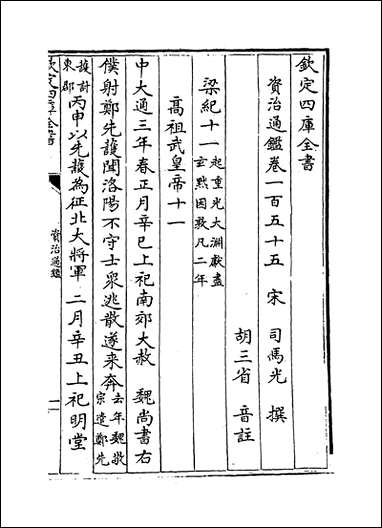 欽定四庫全書
資治通鑑卷一百五十五　宋　司馬光　撰
胡三省　音註
梁紀十一起重光大淵獻盡玄黓困敦凡二年
高祖武皇帝十一
中大通三年春正月辛巳上祀南郊大赦　魏尚書右
僕射鄭先護聞洛陽不守士眾逃散遂來奔去年魏敬宗遣鄭先
護討東郡丙申以先護為征北大將軍　二月辛丑上祀明堂
欽定四庫全書
資治通鑑
一